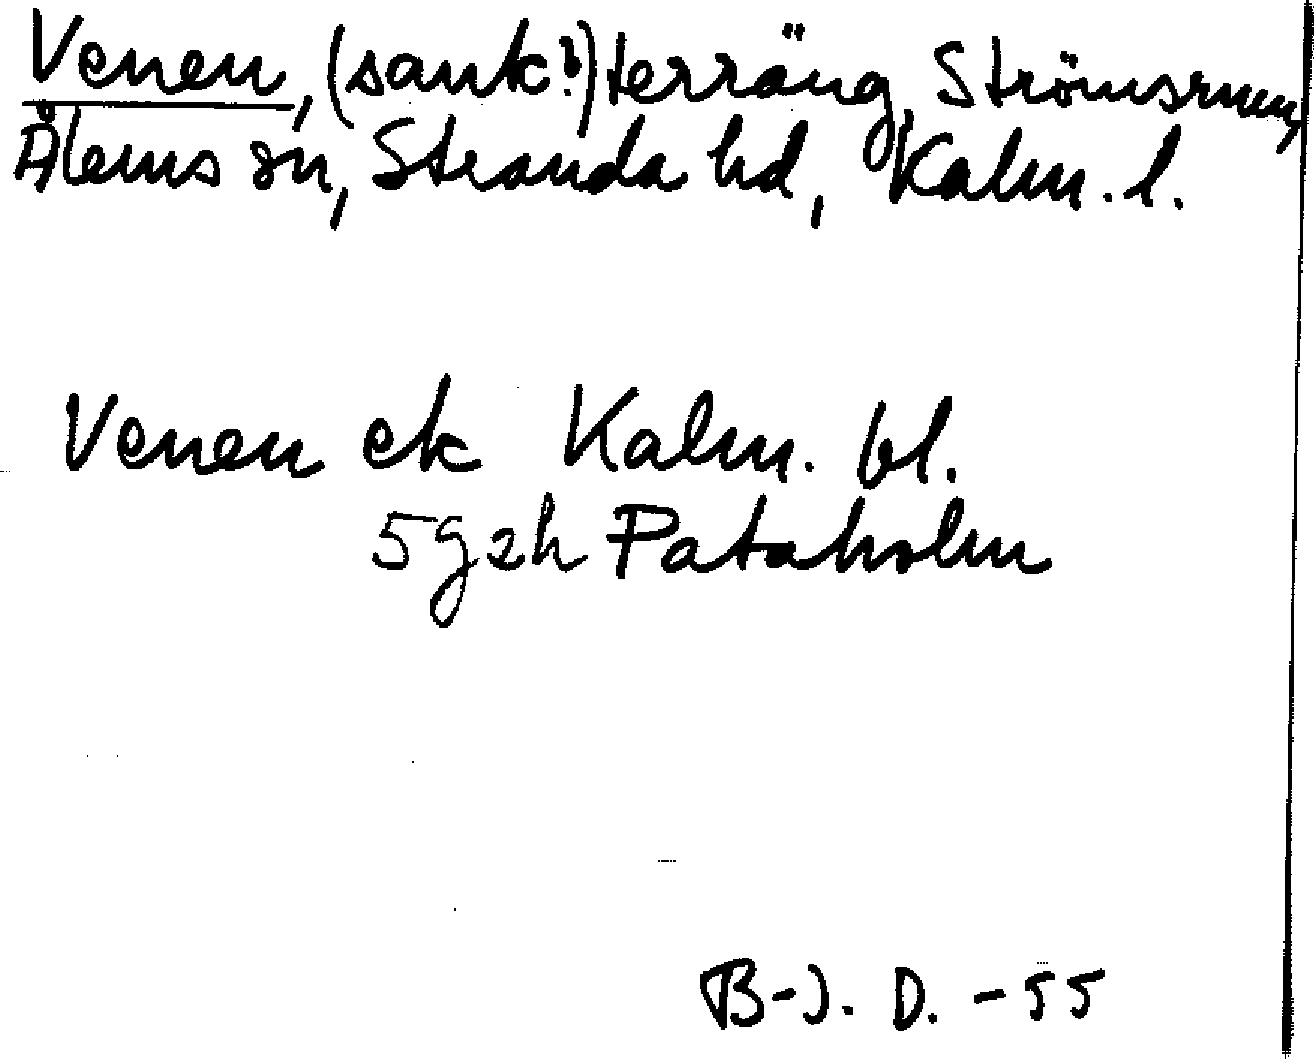 Venen, (sank?) terräng, Strömsrum,
Ålems sn, Stranda hd, Kalm. l.
Venen ek Kalm. bl.
5g2h Pataholm
B-J. D. -55